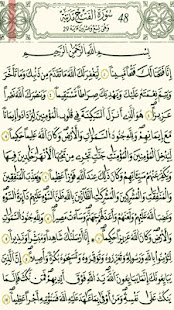 سُورَةُ الْفَتْحِ مَدَنِيَّةٌ 48
وَهِيَ تِسْعٌ وَعِشْرُونَ آيَةً 29
بِسْمِ اللَّهِ الرَّحْمَٰنِ الرَّحِيمِ
إِنَّا فَتَحْنَا لَكَ فَتْحًا مُّبِينًا لِّيَغْفِرَ لَكَ اللَّهُ مَا تَقَدَّمَ مِن ذَنبِكَ وَمَا تَأَخَّرَ
وَيُتِمَّ نِعْمَتَهُ عَلَيْكَ وَيَهْدِيَكَ صِرَاطًا مُّسْتَقِيمًا وَيَنصُرَكَ اللَّهُ
نَصْرًا عَزِيزًا هُوَ الَّذِي أَنزَلَ السَّكِينَةَ فِي قُلُوبِ الْمُؤْمِنِينَ لِيَزْدَادُوا إِيمَانًا
مَّعَ إِيمَانِهِمْ وَلِلَّهِ جُنُودُ السَّمَاوَاتِ وَالْأَرْضِ وَكَانَ اللَّهُ عَلِيمًا حَكِيمًا
لِّيُدْخِلَ الْمُؤْمِنِينَ وَالْمُؤْمِنَاتِ جَنَّاتٍ تَجْرِي مِن تَحْتِهَا الْأَنْهَارُ خَالِدِينَ
فِيهَا وَيُكَفِّرَ عَنْهُمْ سَيِّئَاتِهِمْ وَكَانَ ذَٰلِكَ عِندَ اللَّهِ فَوْزًا عَظِيمًا وَيُعَذِّبَ
الْمُنَافِقِينَ وَالْمُنَافِقَاتِ وَالْمُشْرِكِينَ وَالْمُشْرِكَاتِ الظَّانِّينَ بِاللَّهِ
ظَنَّ السَّوْءِ عَلَيْهِمْ دَائِرَةُ السَّوْءِ وَغَضِبَ اللَّهُ عَلَيْهِمْ وَلَعَنَهُمْ
وَأَعَدَّ لَهُمْ جَهَنَّمَ وَسَاءَتْ مَصِيرًا وَلِلَّهِ جُنُودُ السَّمَاوَاتِ
وَالْأَرْضِ وَكَانَ اللَّهُ عَزِيزًا حَكِيمًا إِنَّا أَرْسَلْنَاكَ شَاهِدًا وَمُبَشِّرًا وَنَذِيرًا
لِّتُؤْمِنُوا بِاللَّهِ وَرَسُولِهِ وَتُعَزِّرُوهُ وَتُوَقِّرُوهُ وَتُسَبِّحُوهُ بُكْرَةً وَأَصِيلًا
إِنَّ الَّذِينَ يُبَايِعُونَكَ إِنَّمَا يُبَايِعُونَ اللَّهَ يَدُ اللَّهِ فَوْقَ أَيْدِيهِمْ فَمَن نَّكَثَ فَإِنَّمَا
يَنكُثُ عَلَىٰ نَفْسِهِ وَمَنْ أَوْفَىٰ بِمَا عَاهَدَ عَلَيْهُ اللَّهَ فَسَيُؤْتِيهِ أَجْرًا عَظِيمًا